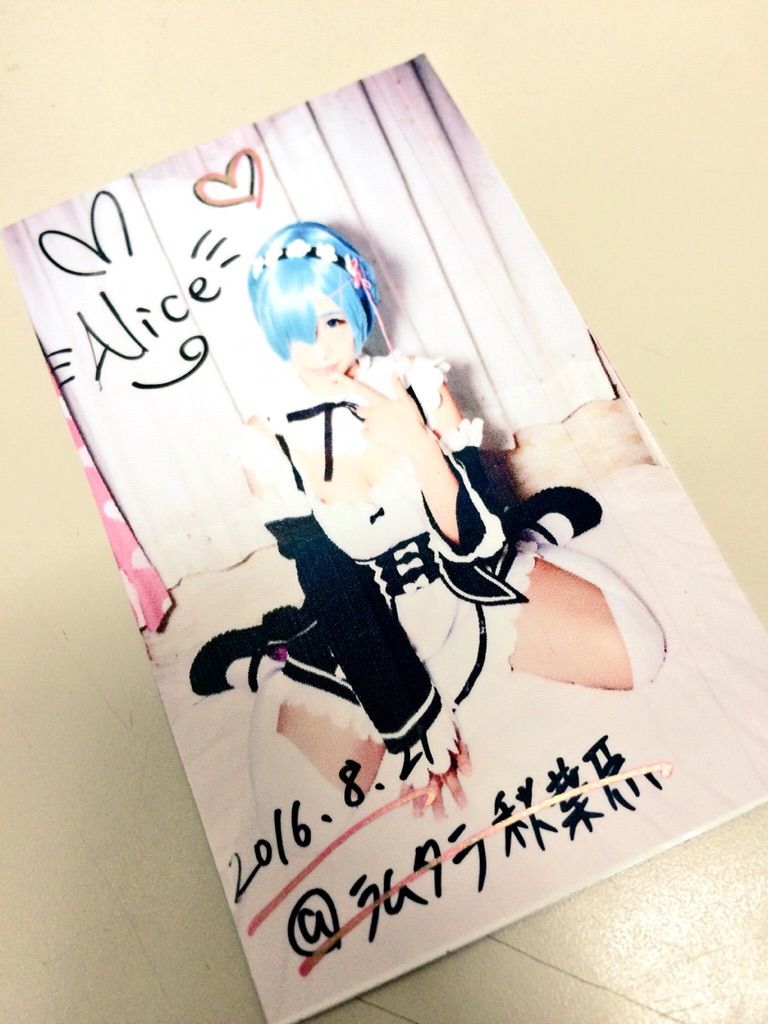 Alice
2016.8.21
@ラムタラ秋葉原